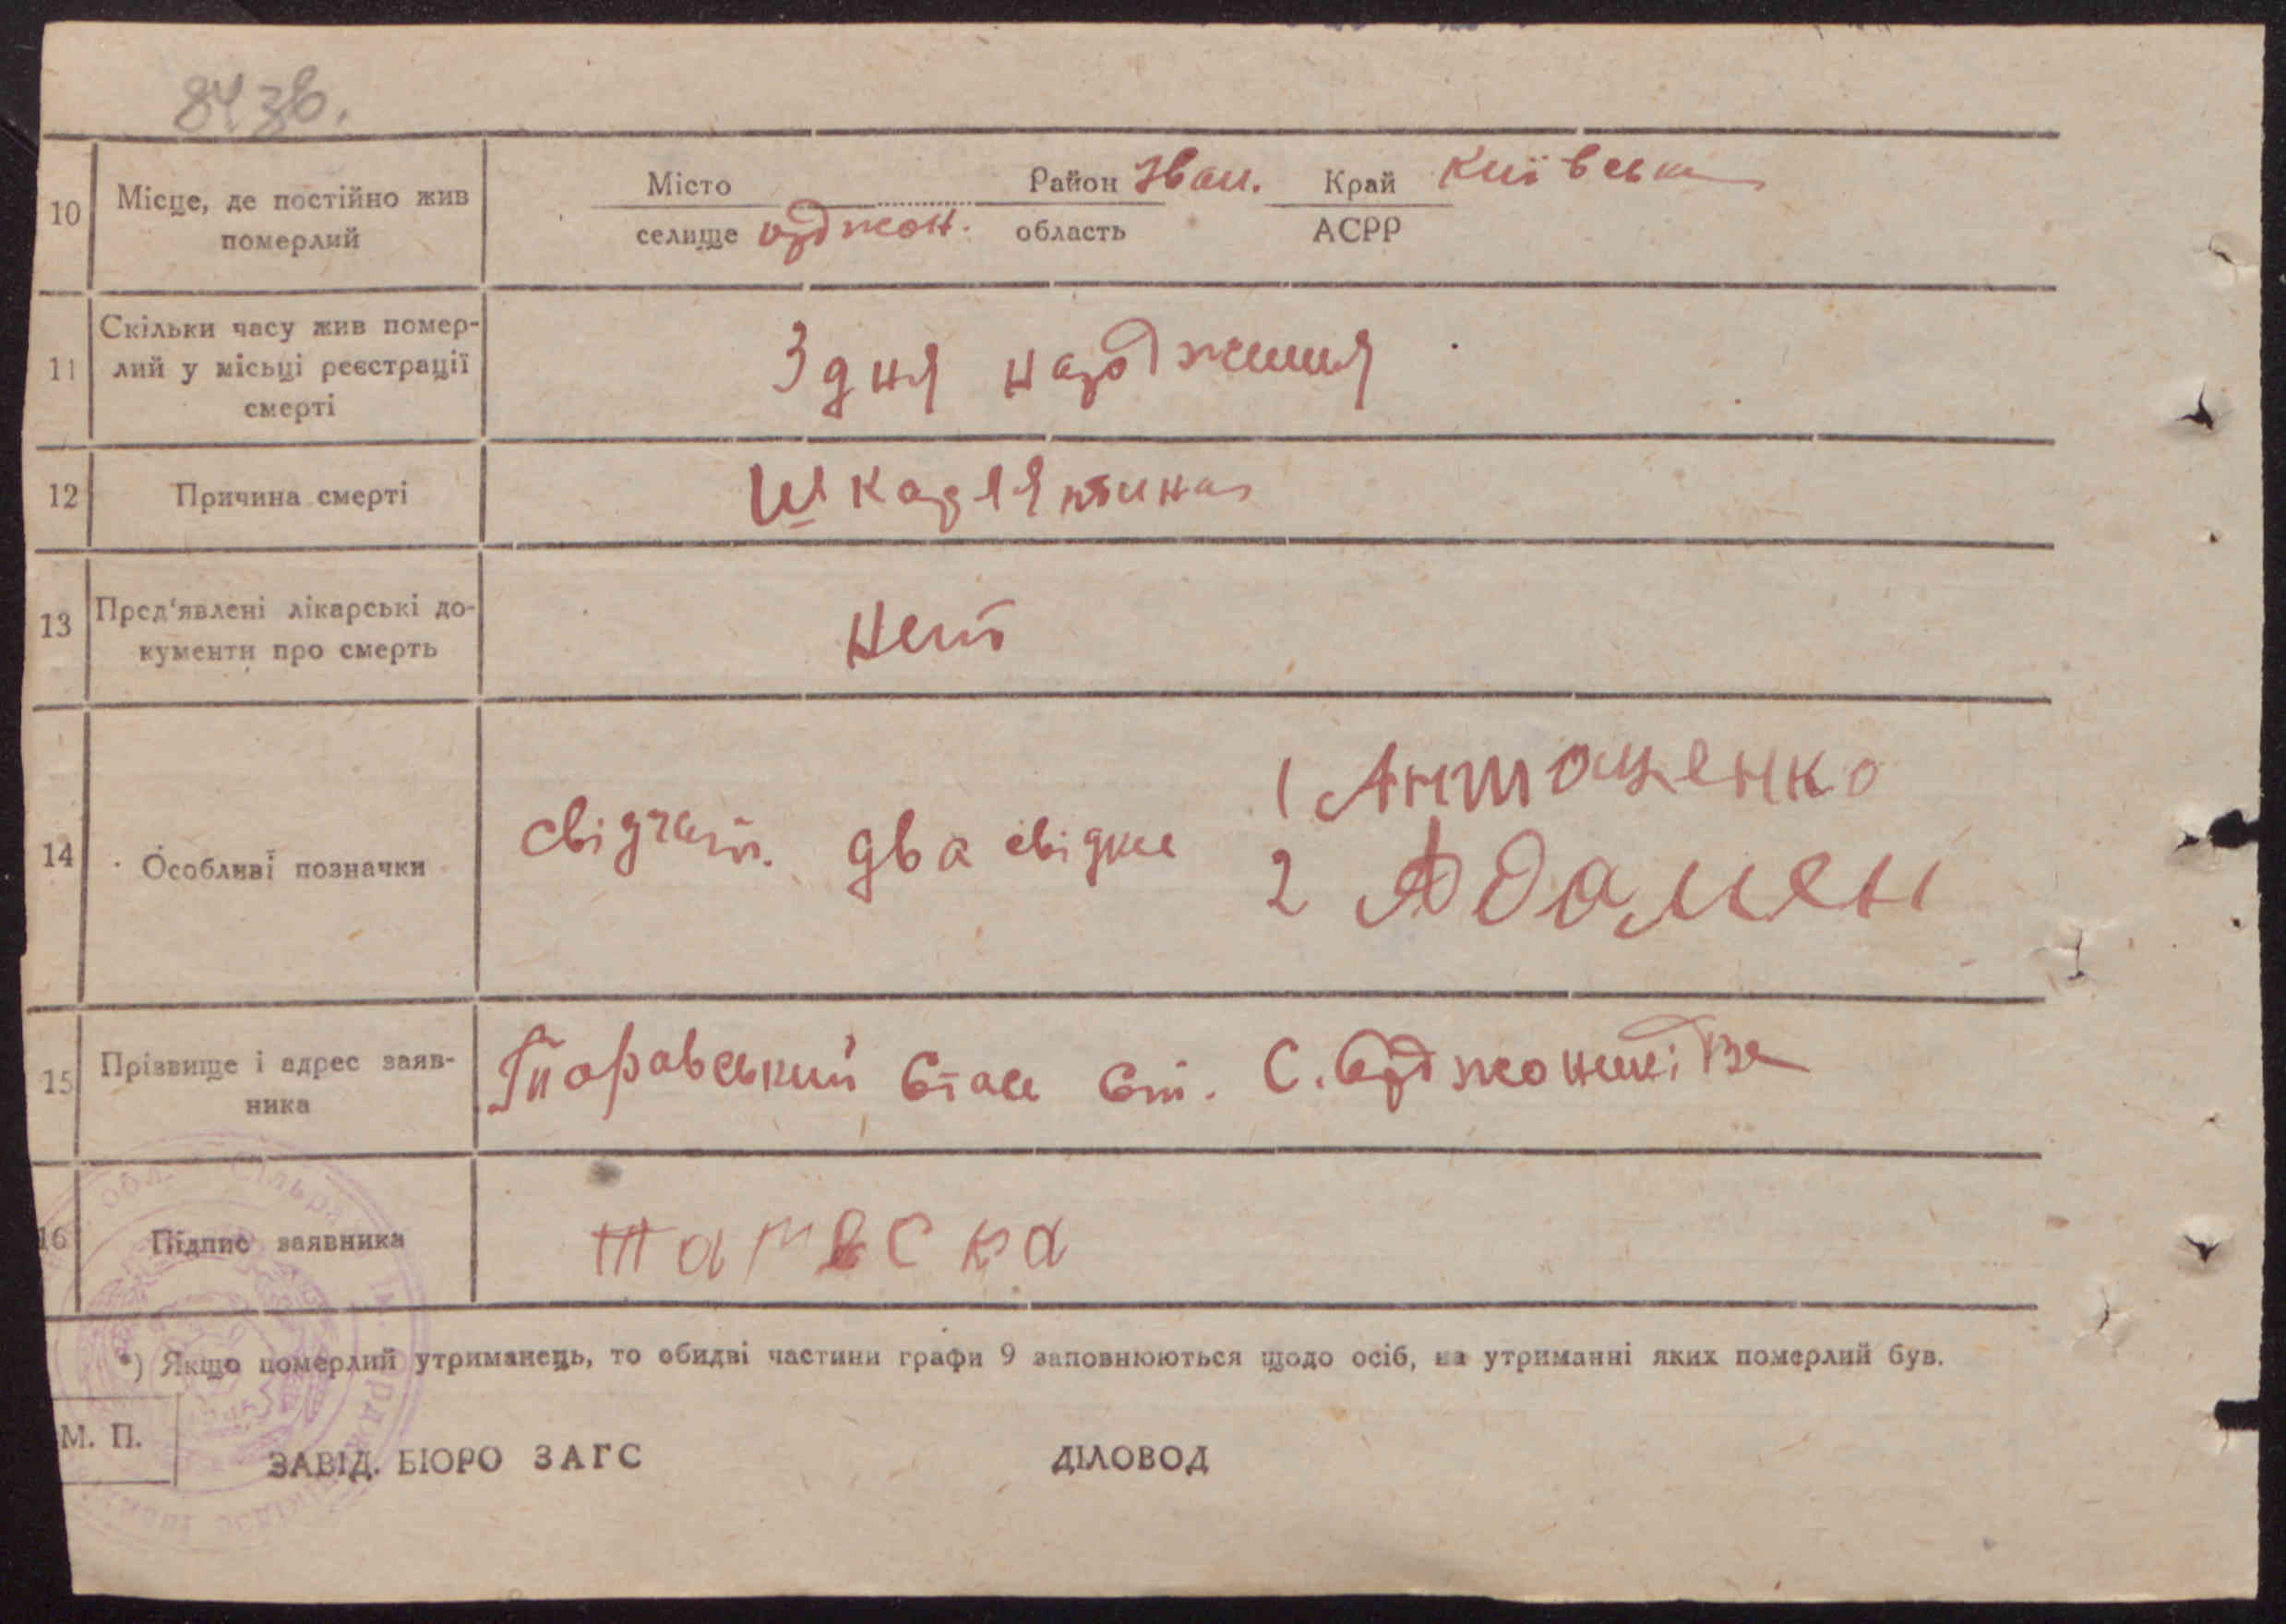 84 зв.
10 Місце, де постійно жив померлий
Місто Район Іван. Край Київськ
селище Орджон. область АСРР
11 Скільки часу жив помер-
лий у місьці реєстрації
смерті
З дня народження
12 Причина смерті Шкарлятина
13 Пред'явлені лікарські до-
кументи про смерть
нет
14 Особливі позначки
свідчать. два свідки
1 Антощенко
2 Адамен
15 Прізвище і адрес заяв-
ника
С. Орджонікідзе
16 Підпис заявника
*) Якщо померлий утриманець, то обидві частини графи 9 заповнюються щодо осіб, на утриманні яких померлий був.
М. П.
ЗАВІД. БЮРО ЗАГС ДІЛОВОД